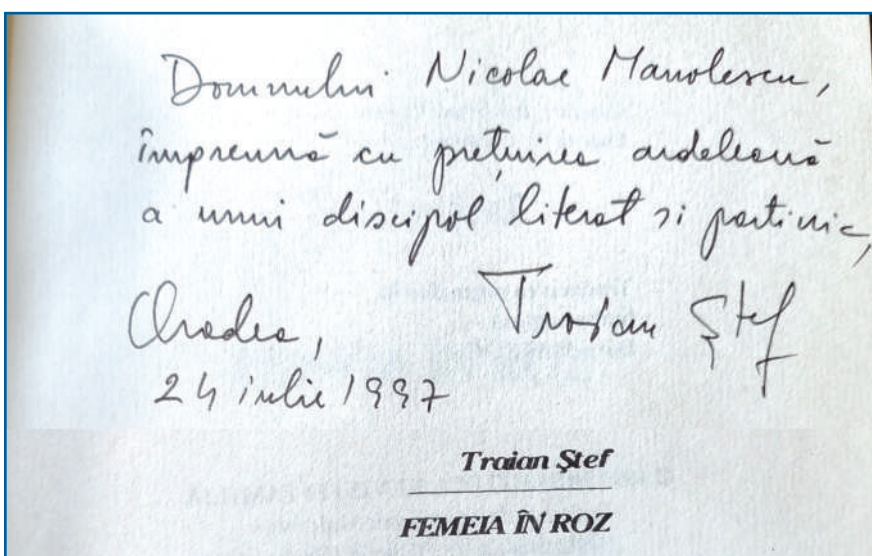 Domnului Nicolae Manolescu,
împreună cu prețuirea ardeleană
a unui discipol literat si partinic,
Oradea, Traian Ștef
24 iulie 1997
Traian Ștef
FEMEIA ÎN ROZ